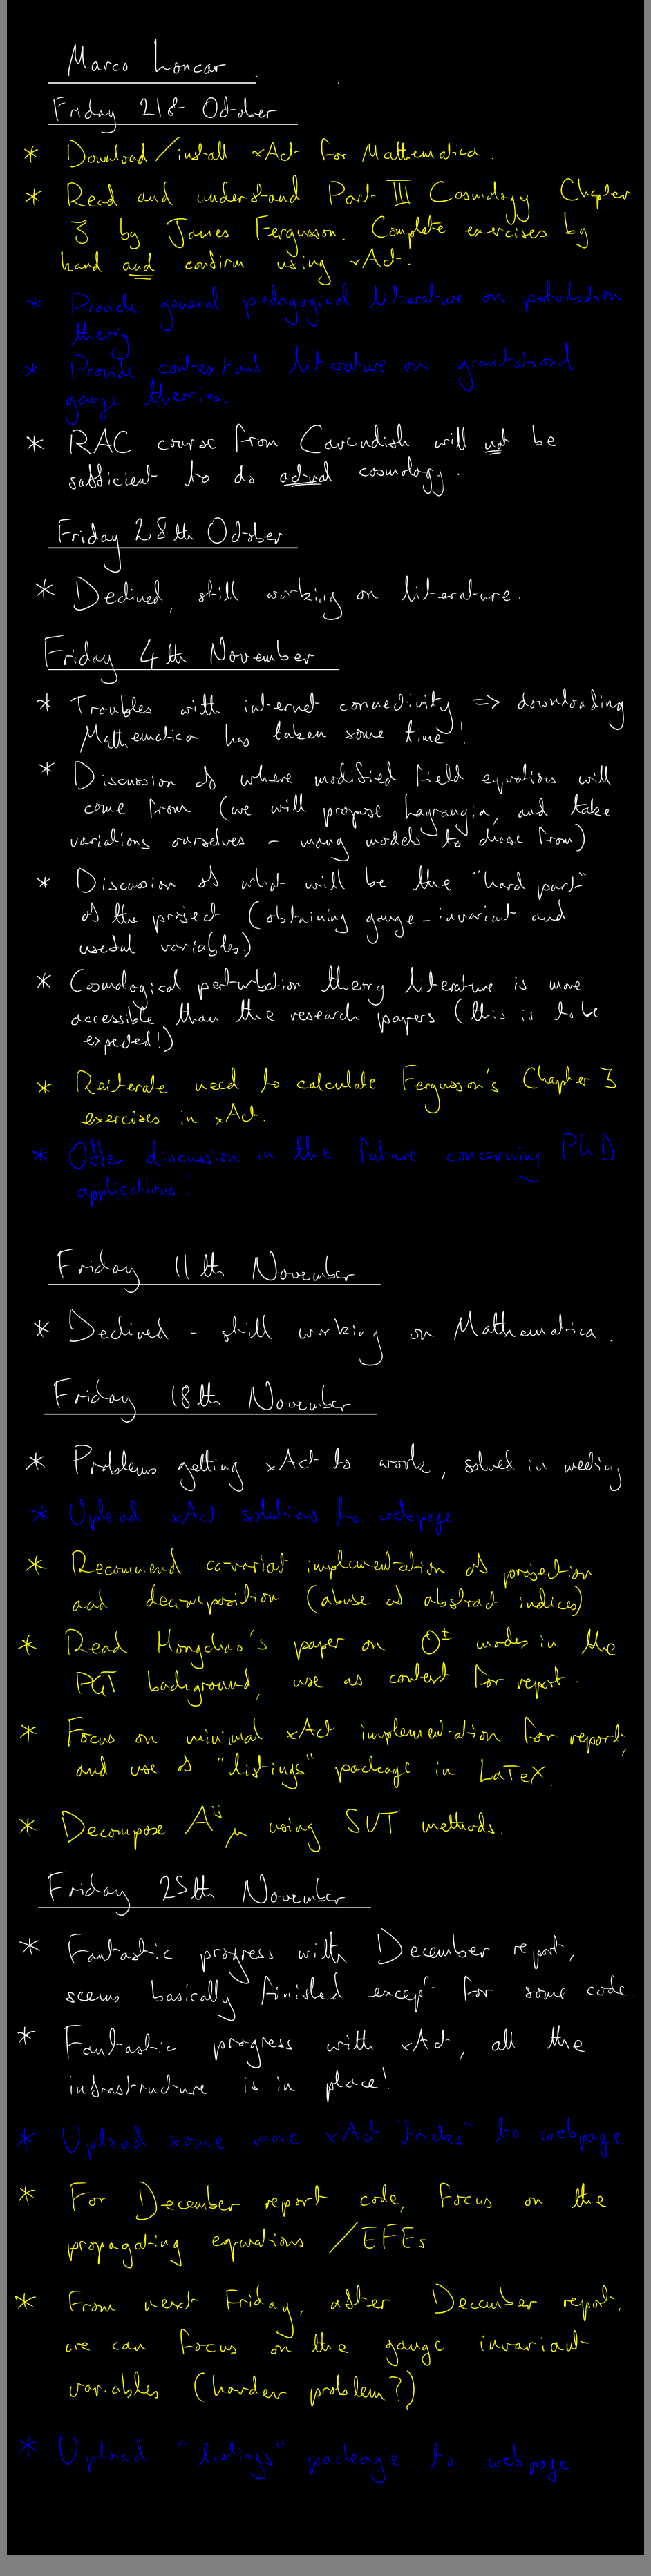 Marco Loncar
Friday 21st October
* Download/install xAct for Mathematica.
* Read and understand Part III Cosmology Chapter
3 by James Fergusson. Complete exercises by
hand and confirm using xAct.
* Provide general pedagogical literature on pertubation
theory
* Provide contextual literature on gravitational
gauge theories.
* RAC course from Cavendish will not be
sufficient to do actual cosmology.
Friday 28th October
* Declined, still working on literature.
Friday 4th November
* Troubles with internet connectivity => downloading
Mathematica has taken some time!
* Discussion of where modified field equations will
come from (we will propose Lagrangia, and take
variations ourselves - many models to chose from)
* Discussion of what will be the "hard part"
of the project (obtaining gauge-invariant and
useful variables.)
* Cosmological perturbation theory literature is more
accessible than the research papers (this is to be
expected!)
* Reiterate need to calculate Fergusson's Chapter 3
exercises in xAct.
* Offer discussion in the future concerning Ph.D
applications!
Friday 11th November
* Declined - still working on Mathematica.
Friday 18th November
* Problems getting xAct to work, solved in meeting
* Upload xAct solutions to webpage
* Recommend co-variant implementation of projection
and decomposition (abuse of abstract indices)
* Read Hongchao's paper on 0± modes in the
PGT background, use as context for report.
* Focus on minimal xAct implementation for report,
and use of "listings" package in LaTeX.
* Decompose A^{ij}_μ using SVT methods.
Friday 25th November
* Fantastic progress with December report,
seems basically finished except for some code.
* Fantastic progress with xAct, all the
infrastructure is in place!
* Upload some more xAct "tricks" to webpage
* For December report code, focus on the
propagating equations /EFEs
* From next Friday, after December report,
we can focus on the gauge invariant
variables (harder problem?)
* Upload "listings" package to webpage.